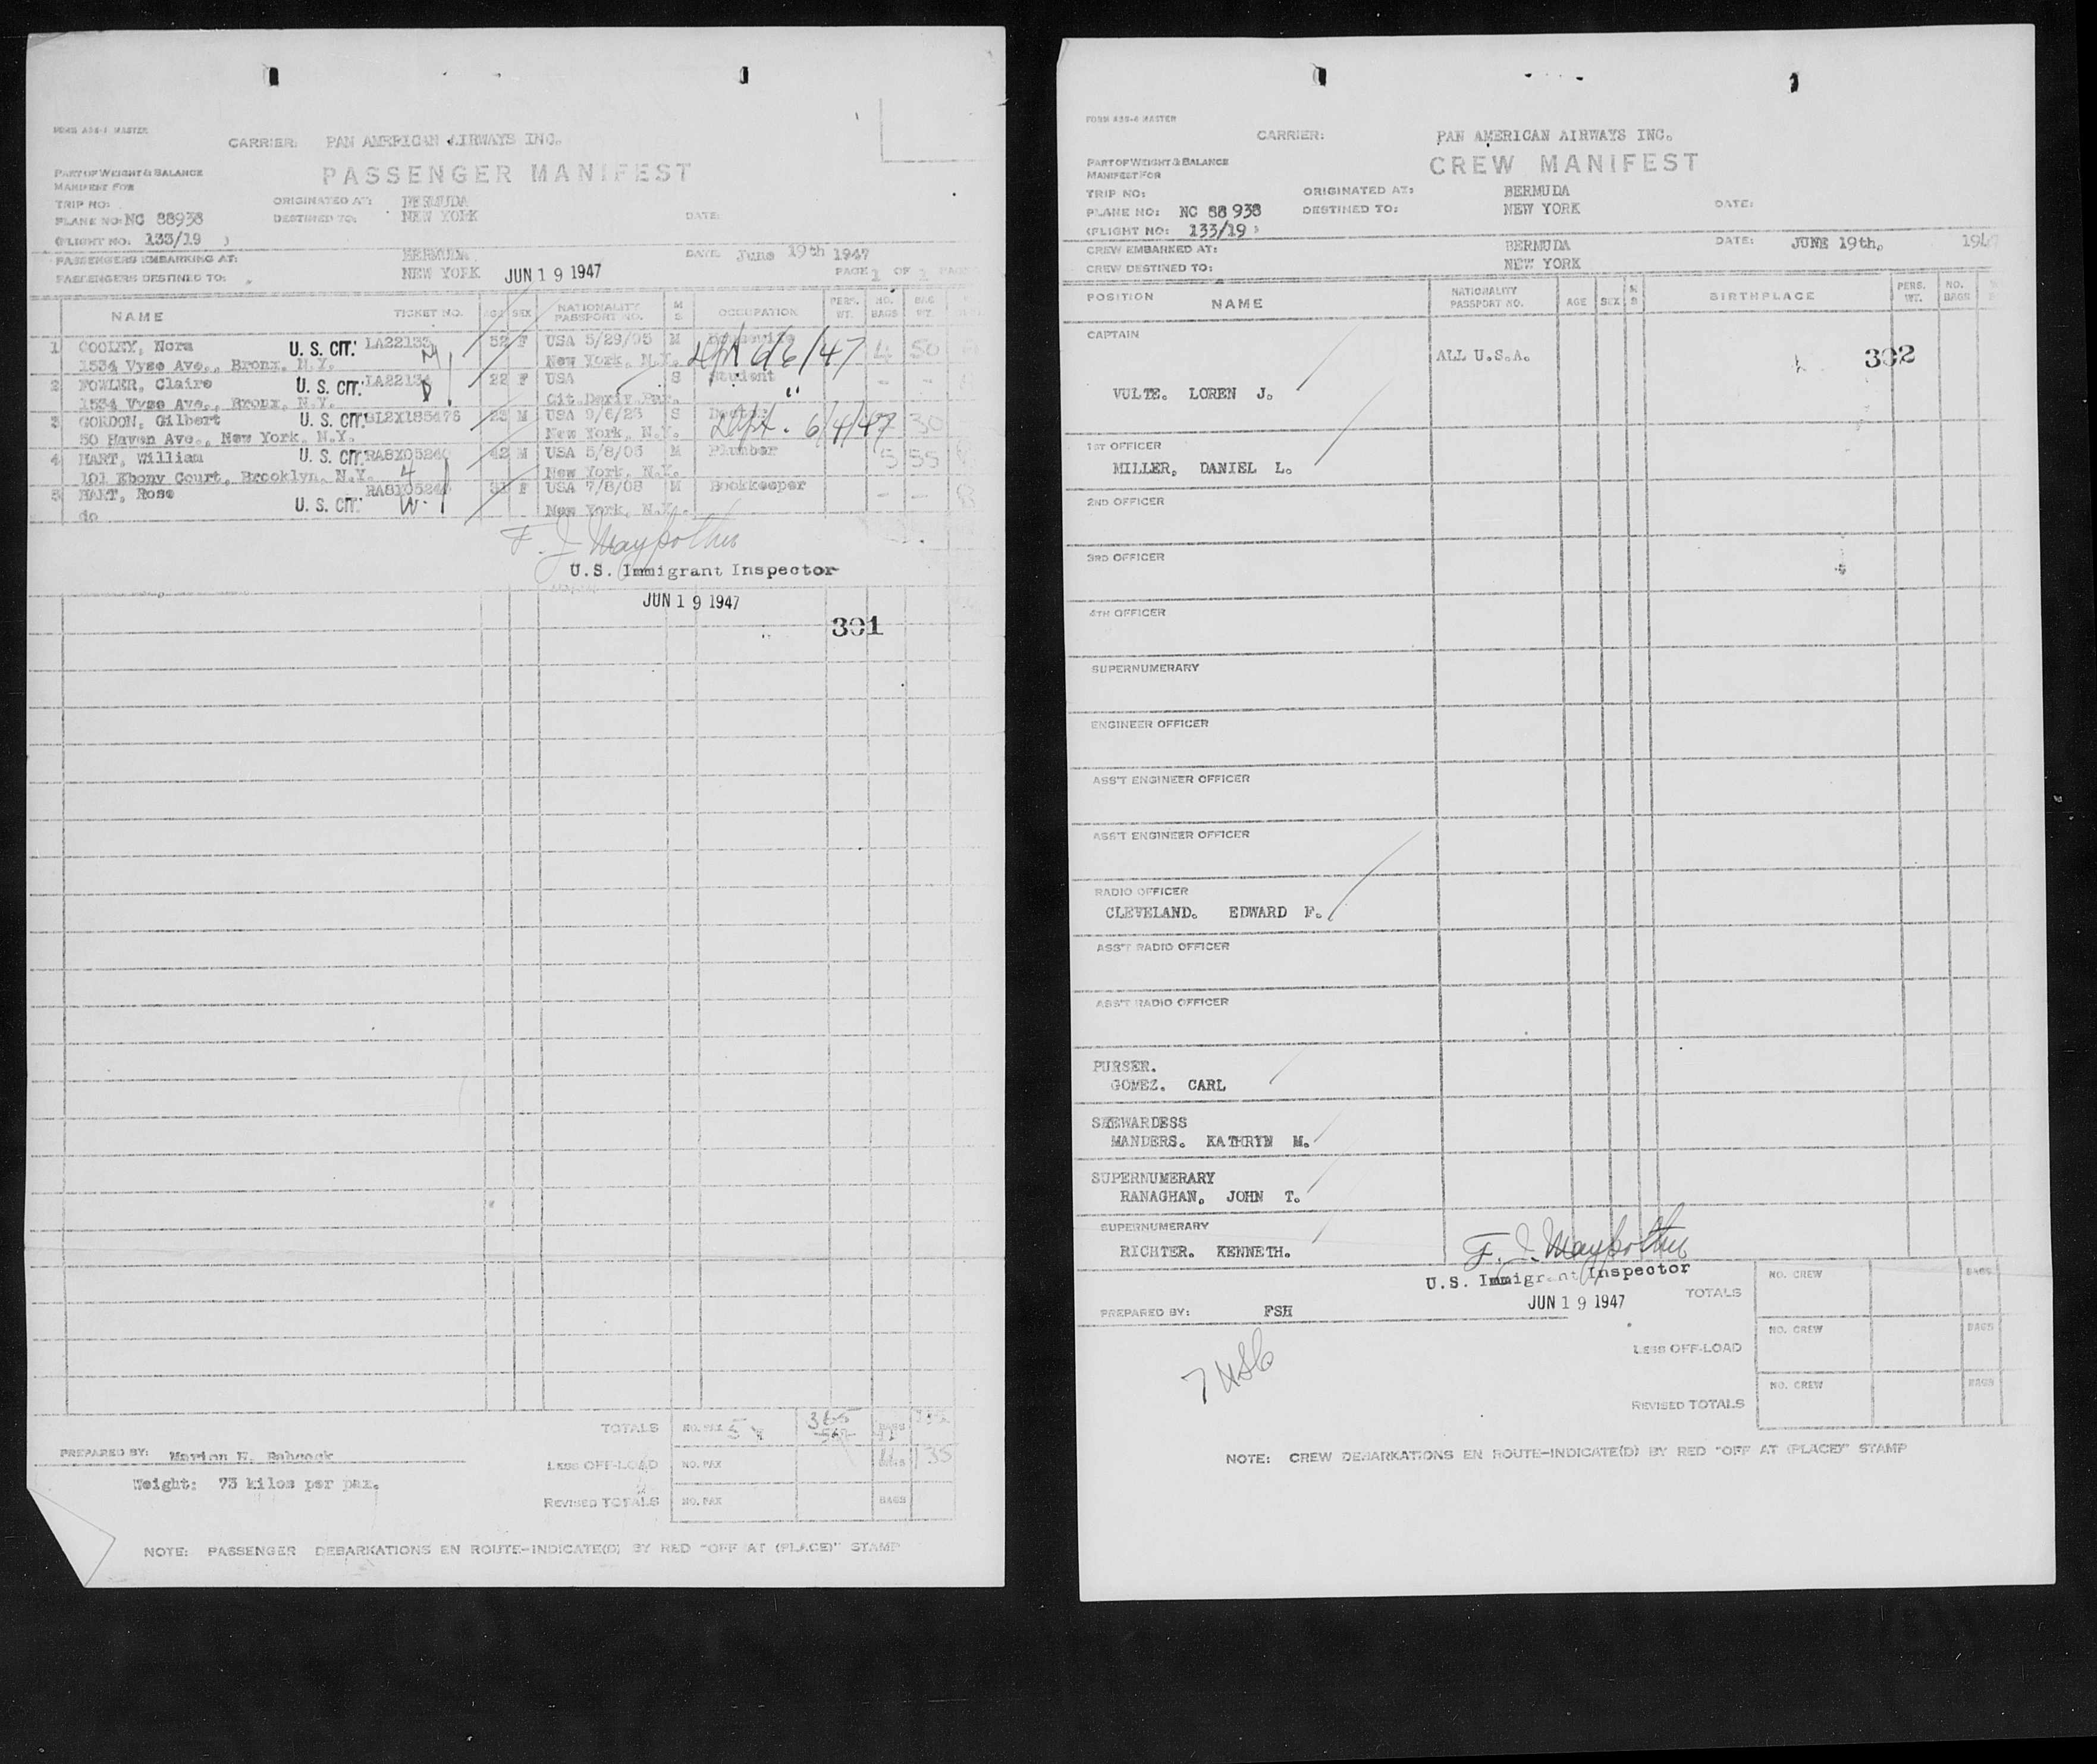 FORM ASS-1 MASTER
CARRIER: PAN AMERICAN AIRWAYS INC.
PASSENGER MANIFEST
PART OF WEIGHT & BALANCE
MANIFEST FOR
TRIP NO:
ORIGINATED AT: BERMUDA
PLANE NO: NC 88938
DESTINED TO: NEW YORK
DATE:
(FLIGHT NO: 133/19 )
PASSENGERS EMBARKING AT: BERMUDA
DATE June 19th 1947
PASSENGERS DESTINED TO: NEW YORK JUN 19 1947
PAGE 1 OF 1 PAGES
NAME TICKET NO. AGE SEX NATIONALITY PASSPORT NO. M S OCCUPATION PERS. WT. NO. BAGS BAG WT.
1 COOLEY, Nora U. S. CIT. LA22133 52 F USA 5/29/95 M Housewife 4 50
1534 Vyse Ave., Bronx, N.Y. New York, N.Y. 6/6/47
2 FOWLER, Claire U. S. CIT. LA22134 22 F USA S Student - -
1534 Vyse Ave., Bronx, N.Y. Cit.Deriv.Par. "
3 GORDON, Gilbert U. S. CIT. M USA 9/6/23 S Doctor 30
50 Haven Ave., New York, N.Y. New York, N.Y. 6/4/47
4 HART, William U. S. CIT. 42 M USA 5/8/05 M Plumber 5 55
101 Ebony Court, Brooklyn, N.Y. New York, N.Y.
5 HART, Rose F USA 7/8/08 M Bookkeeper - -
do U. S. CIT. New York, N.Y.
U.S. Immigrant Inspector
JUN 19 1947
301
TOTALS NO. PAX 5 365 BAGS
PREPARED BY: Marion E. Babcock
LESS OFF-LOAD NO. PAX BAGS 135
Weight: 73 kilos per pax.
REVISED TOTALS NO. PAX BAGS
NOTE: PASSENGER DEBARKATIONS EN ROUTE-INDICATE(D) BY RED "OFF AT (PLACE)" STAMP
FORM ASS-4 MASTER
CARRIER: PAN AMERICAN AIRWAYS INC.
CREW MANIFEST
PART OF WEIGHT & BALANCE
MANIFEST FOR
TRIP NO:
ORIGINATED AT: BERMUDA
PLANE NO: NC 88 938
DESTINED TO: NEW YORK
DATE:
(FLIGHT NO: 133/19 )
CREW EMBARKED AT: BERMUDA
DATE: JUNE 19th, 1947
CREW DESTINED TO: NEW YORK
POSITION NAME NATIONALITY PASSPORT NO. AGE SEX M S BIRTHPLACE PERS. WT. NO. BAGS
CAPTAIN
ALL U.S.A. 302
VULTE. LOREN J.
1ST OFFICER
MILLER, DANIEL L.
2ND OFFICER
3RD OFFICER
4TH OFFICER
SUPERNUMERARY
ENGINEER OFFICER
ASS'T ENGINEER OFFICER
ASS'T ENGINEER OFFICER
RADIO OFFICER
CLEVELAND. EDWARD F.
ASS'T RADIO OFFICER
ASS'T RADIO OFFICER
PURSER.
GOMEZ. CARL
STEWARDESS
MANDERS. KATHRYN M.
SUPERNUMERARY
RANAGHAN. JOHN T.
SUPERNUMERARY
RICHTER. KENNETH.
U.S. Immigrant Inspector
JUN 19 1947
PREPARED BY: FSH
TOTALS NO. CREW BAGS
LESS OFF-LOAD NO. CREW BAGS
REVISED TOTALS NO. CREW BAGS
NOTE: CREW DEBARKATIONS EN ROUTE-INDICATE(D) BY RED "OFF AT (PLACE)" STAMP